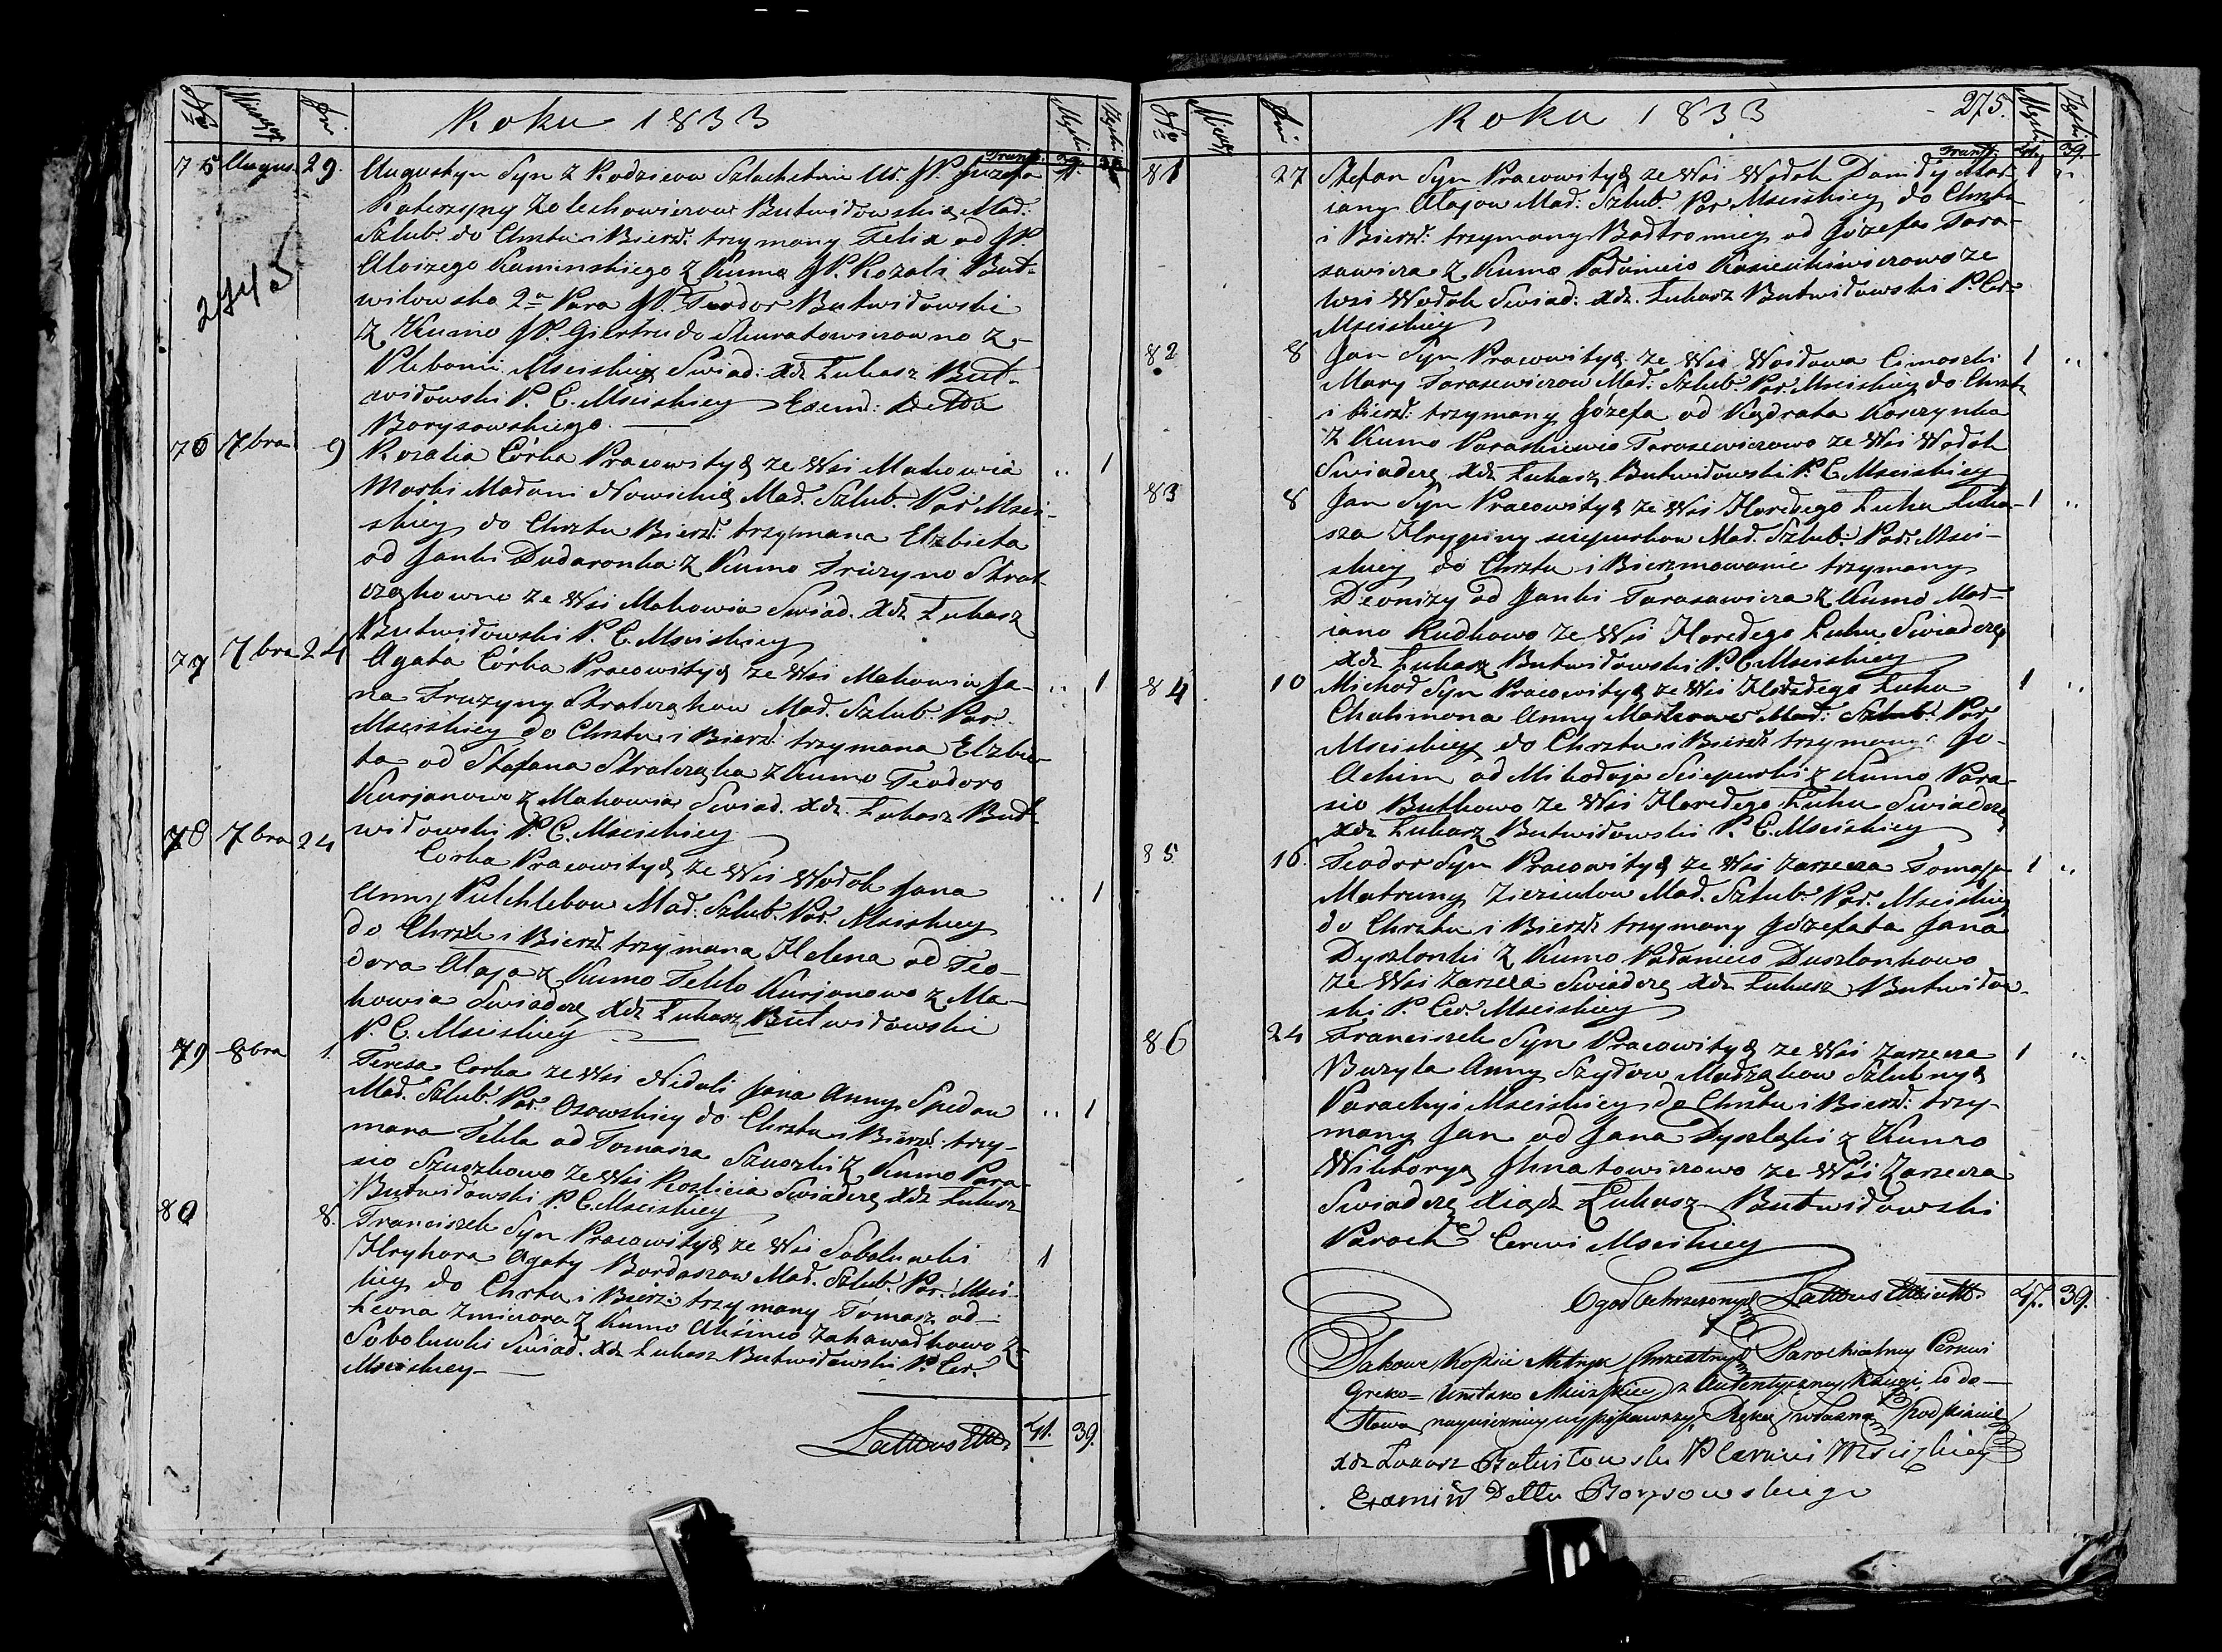 Nro Miesiąc Dni Roku 1833 Męzki Żeński
Transp. 39. 35
75 Augus. 29. Augustyn Syn z Rodziców Szlachetnie Ur. JP. Józefa
Katerzyny Zolechowiczow Butwidowskich Mał:
Szlub. do Chrztu i Bierz: trzymany Felix od JP.
Aloizego Kaminskiego z Kumą JP. Rozalią Bud-
wiłowską 2a Para JP. Teodor Butwidowski
z Kumo JP. Giertrudo Skuratowiczowno z
Plebanii Msciskiey Swiad: Xdz Łukasz But-
widowski P. C. Msciskiey Exem: Dettu
Borysowskiego.
2745
76 7bra 9 Rozalia Córka Pracowitych ze Wsi Makowia
Moski Madoni Nowickich Mał. Szlub. Par. Msci-
skiey do Chrztu Bierz: trzymana Elzbieta
od Janki Dudaronka z Kumo Fruzyno Stral-
czękowno ze Wsi Makowia Swiad. Xdz Łukasz
Butwidowski P. C. Msciskiey
.. 1
77 7bra 24 Agata Córka Pracowitych ze Wsi Makowia Ja-
na Fruzyny Stralczękow Mał. Szlub. Par.
Msciskiey do Chrztu i Bierz: trzymana Elzbie-
ta od Stefana Stralczęka z Kumo Teodoro
Kurjanowo z Makowia Swiad. Xdz. Łukasz But-
widowski P. C. Msciskiey
.. 1
78 7bra 24
Córka Pracowitych ze Wsi Wodok Jana
Anny Pulchlebow Mał. Szlub. Par. Msciskiey
do Chrztu i Bierz trzymana Helena od Teo-
dora Ataja z Kumo Teklo Kurjanowo z Ma-
kowia Swiadczę Xdz Łukasz Butwidowski
P. C. Msciskiey
.. 1
79 8bra 1. Teresa Corka ze Wsi Niedali Jana Anny Spedow
Mał. Szlub. Par. Osowskiey do Chrztu i Bierz: trzy-
mana Tekla od Tomasza Szuszki z Kumo Para-
sio Szuszkowo ze Wsi Kozlicia Swiadczę Xdz Łukasz
Butwidowski P. C. Mscisskiey
.. 1
80 8. Franciszek Syn Pracowitych ze Wsi Sobaluwki
Hryhora Agaty Bordaszow Mał. Szlub. Par. Msci-
kiey do Chrztu i Bierz: trzymany Tomasz od
Leona Zmiciora z Kumo Aksinio Zakawadkowo z
Sobaluwki Swiad. Xdz Łukasz Butwidowski P. Cer.
Msciskiey
1
Lattus 41. 39.
Nro Miesiąc Dni Roku 1833 275. Męzki Żeński
Transp. 41. 39.
81 27 Stefan Syn Pracowitych ze Wsi Wodok Danidy Mar-
ianny Atajow Mał: Szlub. Par Msciskiey do Chrztu
i Bierz: trzymany Badtromiey od Józefa Tara-
sawicza z Kumo Podonicio Kasieckiewiczowo ze
Wsi Wodok Swiad: Xdz. Łukasz Butwidowski P. Cer
Mscickiey
1 ..
82 8 Jan Syn Pracowitych ze Wsi Woidowa Cimoszki
Mary Tarasewiczow Mał: Szlub. Par. Mscickiey do Chrztu
i bierz: trzymany Józefa od Kędrata Koszynka
z Kumo Paraskiewio Tarasewiczowo ze Wsi Wodok
Swiadczę Xdz Łukasz Butwidowski P. C. Mscickiey
1 ..
83 8 Jan Syn Pracowitych ze Wsi Horedego Łuhu Łuka-
sza Hrypiny Sciepurkow Mał. Szlub: Par: Msci-
skiey do Chrztu i Bierzmowanie trzymany
Deonizy od Janki Tarasawicza z Kumo Mar-
iano Rudkowo ze Wsi Horedego Łuhu Swiadczę
Xdz Łukasz Butwidowski P. C. Mscickiey
1 ..
84 10 Michał Syn Pracowitych ze Wsi Horedego Łuhu
Chalimona Anny Mackowow Mał: Szlub: Par.
Mscickiey do Chrztu i Bierz: trzymany Jo-
achim od Mikołaja Sciepurki z Kumo Para-
sio Butkowo ze Wsi Horedego Łuhu Swiadczę
Xdz Łukasz Butwidowski P. C. Mscickiey
1 ..
85. 16. Teodor Syn Pracowitych ze Wsi Zarzecza Tomasza
Matruny Zieziulow Mał. Szlub. Par. Mscickiey
do Chrztu i Bierz: trzymany Józefata Jana
Dyszlonki z Kumo Podonicio Duszlonkowo
ze Wsi Zarzecza Swiadczę Xdz Łukasz Butwidow-
ski P. Cer. Mscickiey
1 ..
86 24 Franciszek Syn Pracowitych ze Wsi Zarzecza
Bazyla Anny Szydow Małżąkow Szlubnych
Parachyi Mscickiey do Chrztu i Bierz: trzy-
many Jan od Jana Dyszlęki z Kumo
Wiktoryą Ihnatowiczowo ze Wsi Zarzecza
Swiadczę Xiądz Łukasz Butwidowski
Paroch Cerwi Mscickiey
1 ..
Ogoł Ochrzczonych Lattus 47. 39.
Takowe Kopiie Metryk Chrzestnych Parochialney Cerkwi
Greko-Unitsko Mscizskiey z Autentyczney Xięgi co do
Słowa naywierniey wypisawszy Ręką własną podpisuię
Xdz Łukasz Butwidowski P Cerkwi Mscizkiey
Exami Dettu Borysowskiego